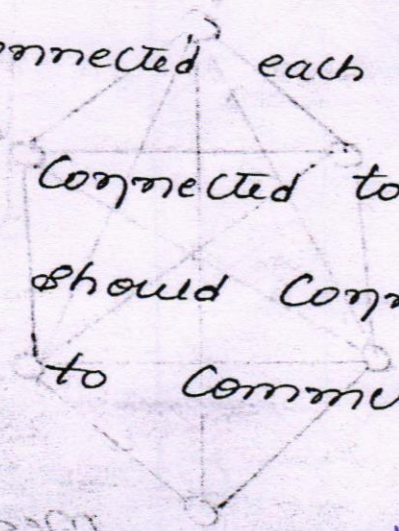 onnected each
Connected to
should Conn
to Commu